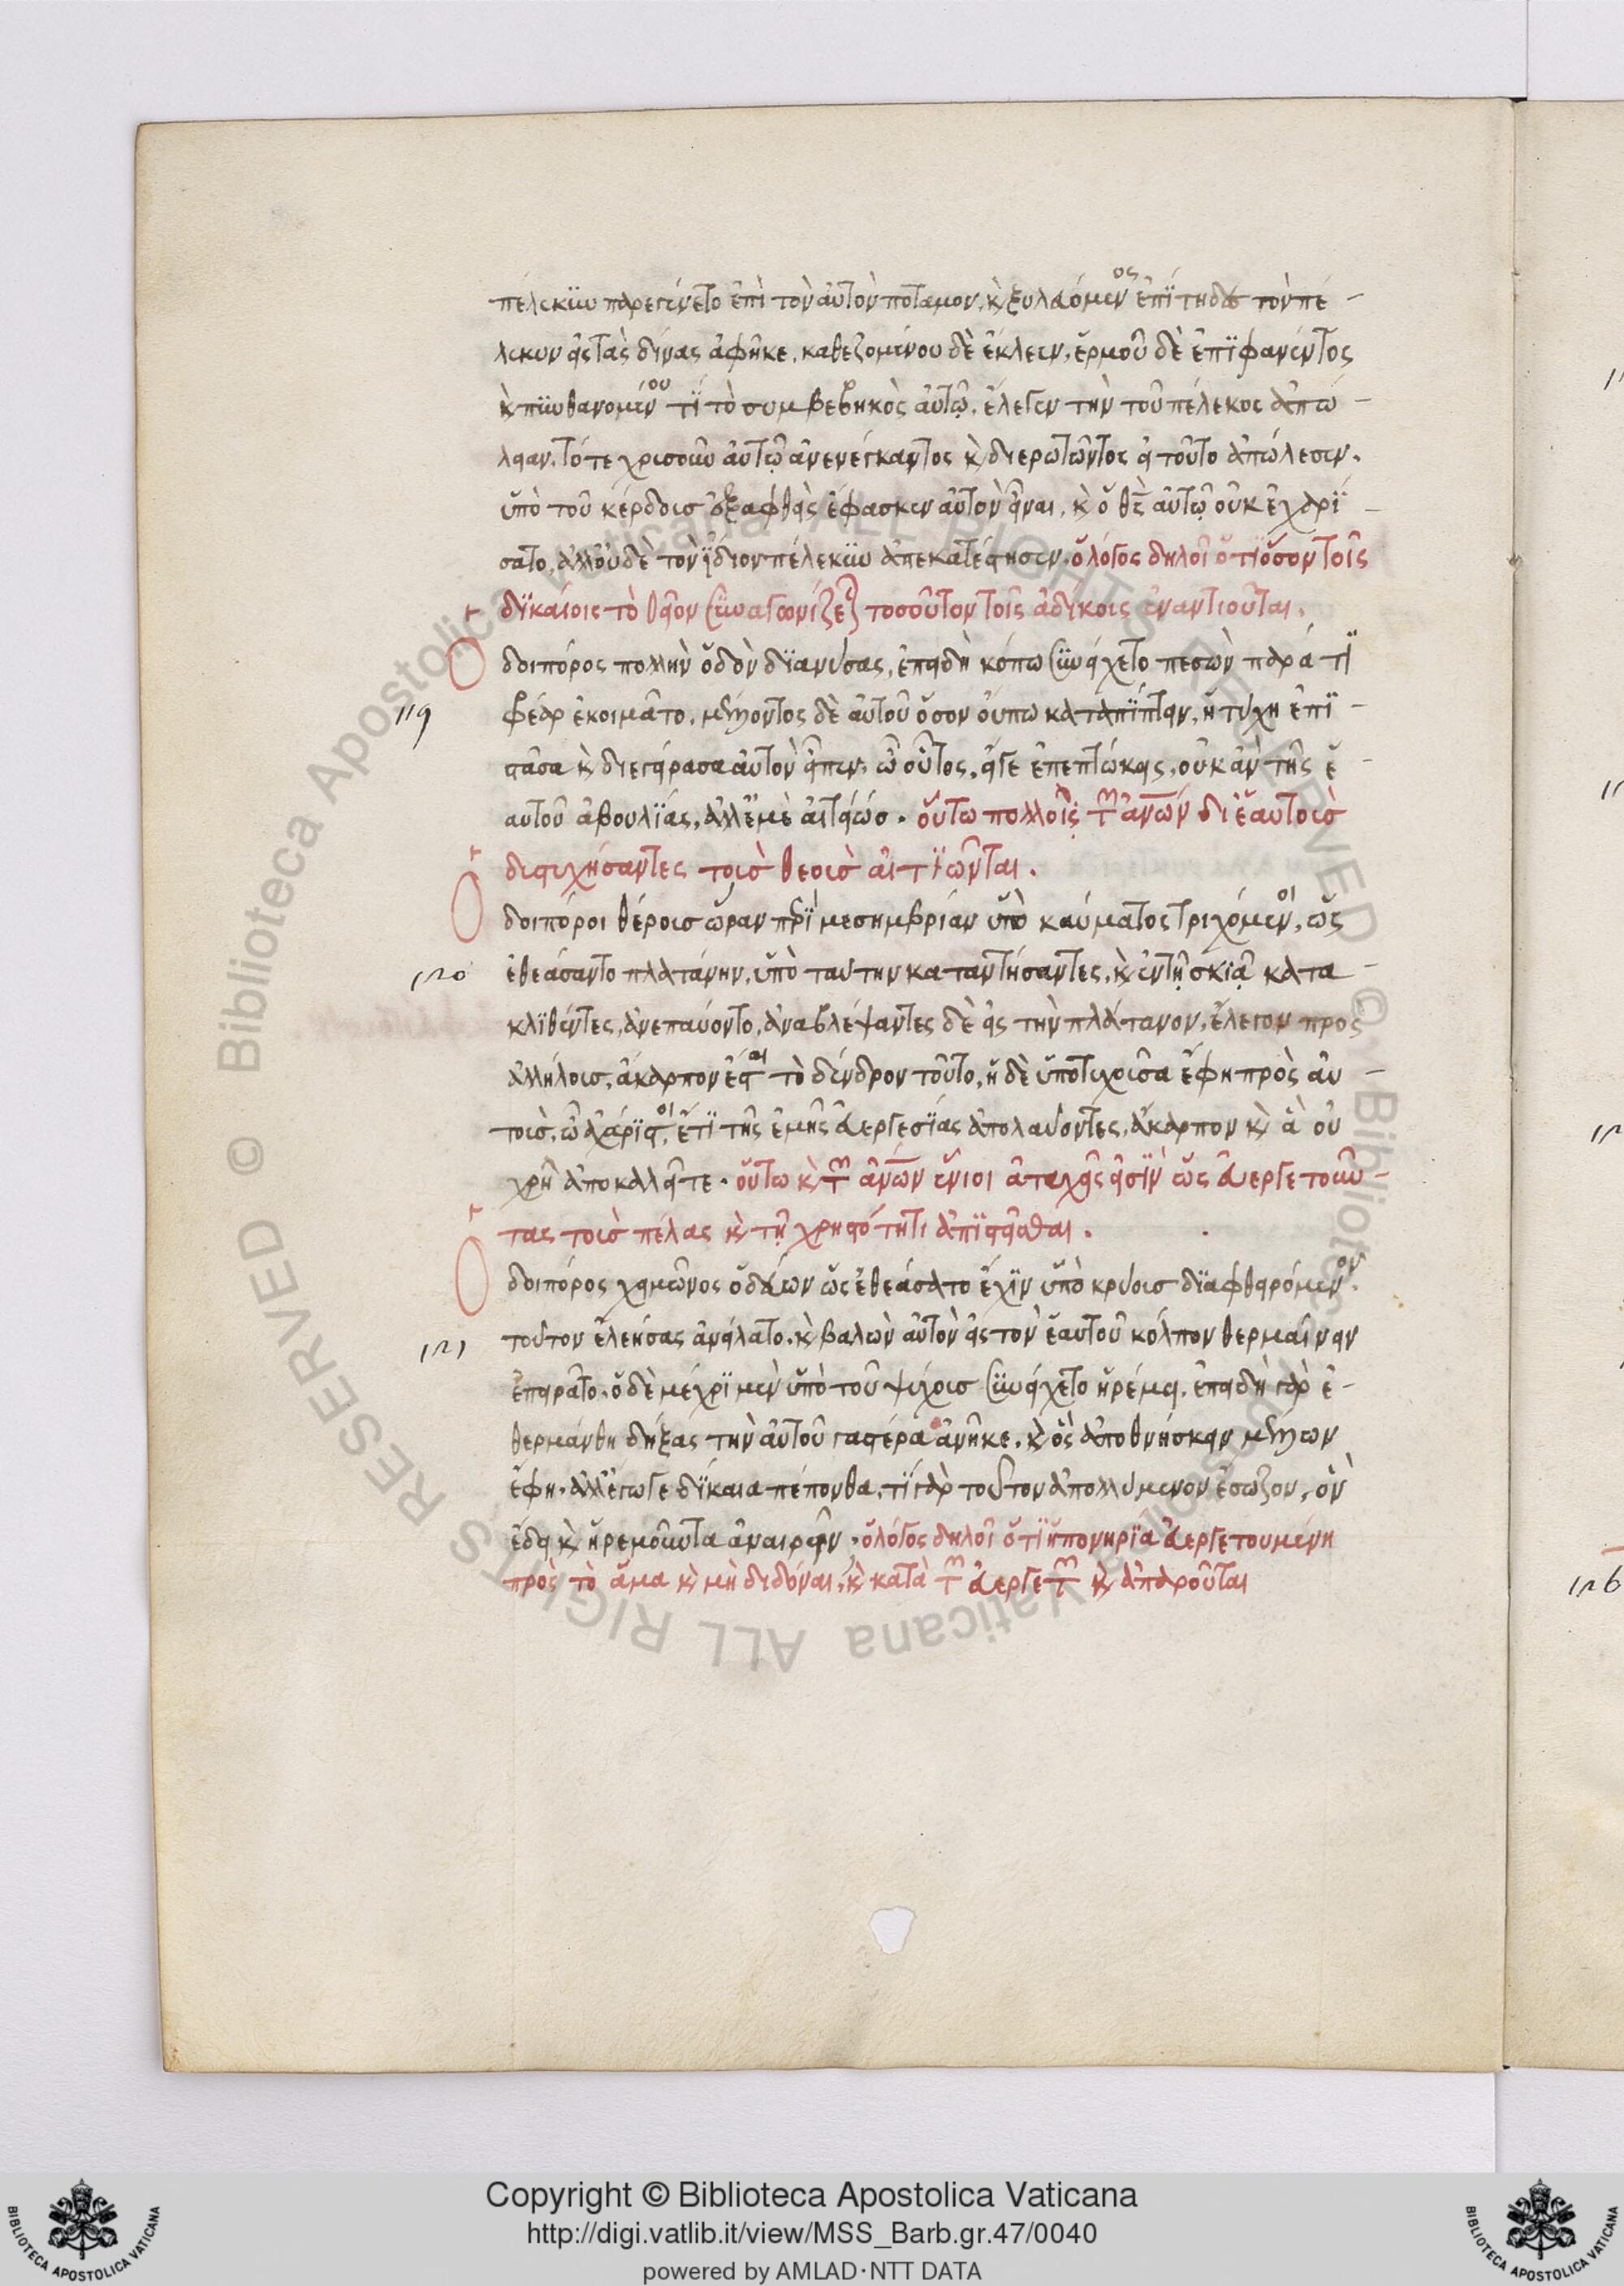 πέλεκυν παρεγένετο ἐπὶ τὸν αὐτὸν ποταμόν, κ ξυλευόμενος ἐπίτηδες τὸν πέ-
λεκυν εἰς τὰς δίνας ἀφῆκε, καθεζόμενου δὲ ἔκλεεν, ἑρμοῦ δὲ ἐπϊφανέντος
κ πυνθανομένου τί τὸ συμβεβηκὸς αὐτῷ, ἔλεγεν τὴν τοῦ πέλεκος ἀπώ-
λειαν, τότε χρυσοῦν αὐτῷ ἀνενέγκαντος κ διερωτῶντος εἰ τοῦτο ἀπώλεσεν.
ὑπὸ τοῦ κέρδους ἐξαφθεὶς ἔφασκεν αὐτὸν εἶναι, κ ὁ θεὸς αὐτῷ οὐκ ἐχαρί-
σατο, ἀλλ' οὐδὲ τὸν ἴδιον πέλεκυν ἀπεκατέστησεν. ὁ λόγος δηλοῖ ὅτι ὅσον τοῖς
δϊκαίοις τὸ θεῖον συναγωνίζεται τοσοῦτον τοῖς ἀδίκοις ἐναντιοῦται.
Ὁδοιπόρος πολλὴν ὁδὸν διανύσας, ἐπειδὴ κόπω συνείχετο πεσὼν παρά τι
φρέαρ ἐκοιμᾶτο, μέλλοντος δὲ αὐτοῦ ὅσον οὔπω καταπίπτειν, ἡ τύχη ἐπι-
στᾶσα κ διεγείρασα αὐτὸν εἶπεν, ὦ οὗτος, εἴγε ἐπεπτώκεις, οὐκ ἂν τῆς ἑ-
αυτοῦ ἀβουλίας, ἀλλ' ἐμὲ αἰτιῶσο. οὕτω πολλοὶ τῶν ἀνων δι' ἑαυτοὺς
δυστυχήσαντες τοὺς θεοὺς αἰτιῶνται.
Ὁδοιπόροι θέρους ὥραν περὶ μεσημβρίαν ὑπὸ καύματος τρυχόμενοι, ὡς
ἐθεάσαντο πλατάνην, ὑπὸ ταύτην καταντήσαντες, κ ἐν τῇ σκιᾷ κατα-
κλιθέντες, ἀνεπαύοντο, ἀναβλέψαντες δὲ εἰς τὴν πλάτανον, ἔλεγον προς
ἀλλήλους, ἄκαρπον ἐστι τὸ δένδρον τοῦτο, ἡ δὲ ὑποτυχοῦσα ἔφη πρὸς αὐ-
τούς, ὦ ἀχάριστοι, ἔτι τῆς ἐμῆς εὐεργεσίας ἀπολαύοντες, ἄκαρπον κ ἀ οὐ
χρῆ ἀποκαλεῖτε. οὕτω κ τῶν ἀνων ἔνιοι ἀτυχεῖς εἰσὶν ὡς εὐεργετοῦν-
τας τοὺς πέλας κ τῇ χρηστότητι ἀπιστεῖσθαι.
Ὁδοιπόρος χειμῶνος ὁδεύων ὡς ἐθεάσατο ἔχιν ὑπὸ κρύους διαφθειρόμενον.
τοῦτον ἐλεήσας ἀνείλατο, κ βαλὼν αὐτὸν εἰς τὸν ἑαυτοῦ κόλπον θερμαίνειν
ἐπειρᾶτο, ὁ δὲ μέχρι μὲν ὑπὸ τοῦ ψύχους συνείχετο ἠρέμει, ἐπειδὴ γὰρ ἐ-
θερμάνθη δήξας τὴν αὐτοῦ γαστέρα ἀνῆκε, κ ὃς ἀποθνήσκειν μέλλων
ἔφη, ἀλλ' ἔγωγε δίκαια πέπονθα, τί γὰρ τοῦτον ἀπολλύμενον ἔσωζον, ὃν
ἔδει κ ἠρεμοῦντα ἀναιρεῖν. ὁ λόγος δηλοῖ ὅτι ἡ πονηρία εὐεργετουμένη
πρὸς τὸ ἅμα κ μὴ διδόναι, κ κατὰ τῶν εὐεργετῶν κ ἀπαροῦται
119
120
121
126
Copyright © Biblioteca Apostolica Vaticana
http://digi.vatlib.it/view/MSS_Barb.gr.47/0040
powered by AMLAD·NTT DATA
BIBLIOTECA APOSTOLICA VATICANA
BIBLIOTECA APOSTOLICA VATICANA
© Biblioteca Apostolica Vaticana ALL RIGHTS RESERVED
© Biblioteca Apostolica Vaticana ALL RIGHTS RESERVED